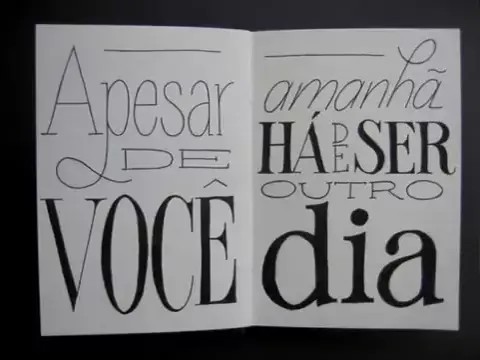 Apesar
DE
VOCÊ
amanhã
HÁ DE SER
OUTRO
dia